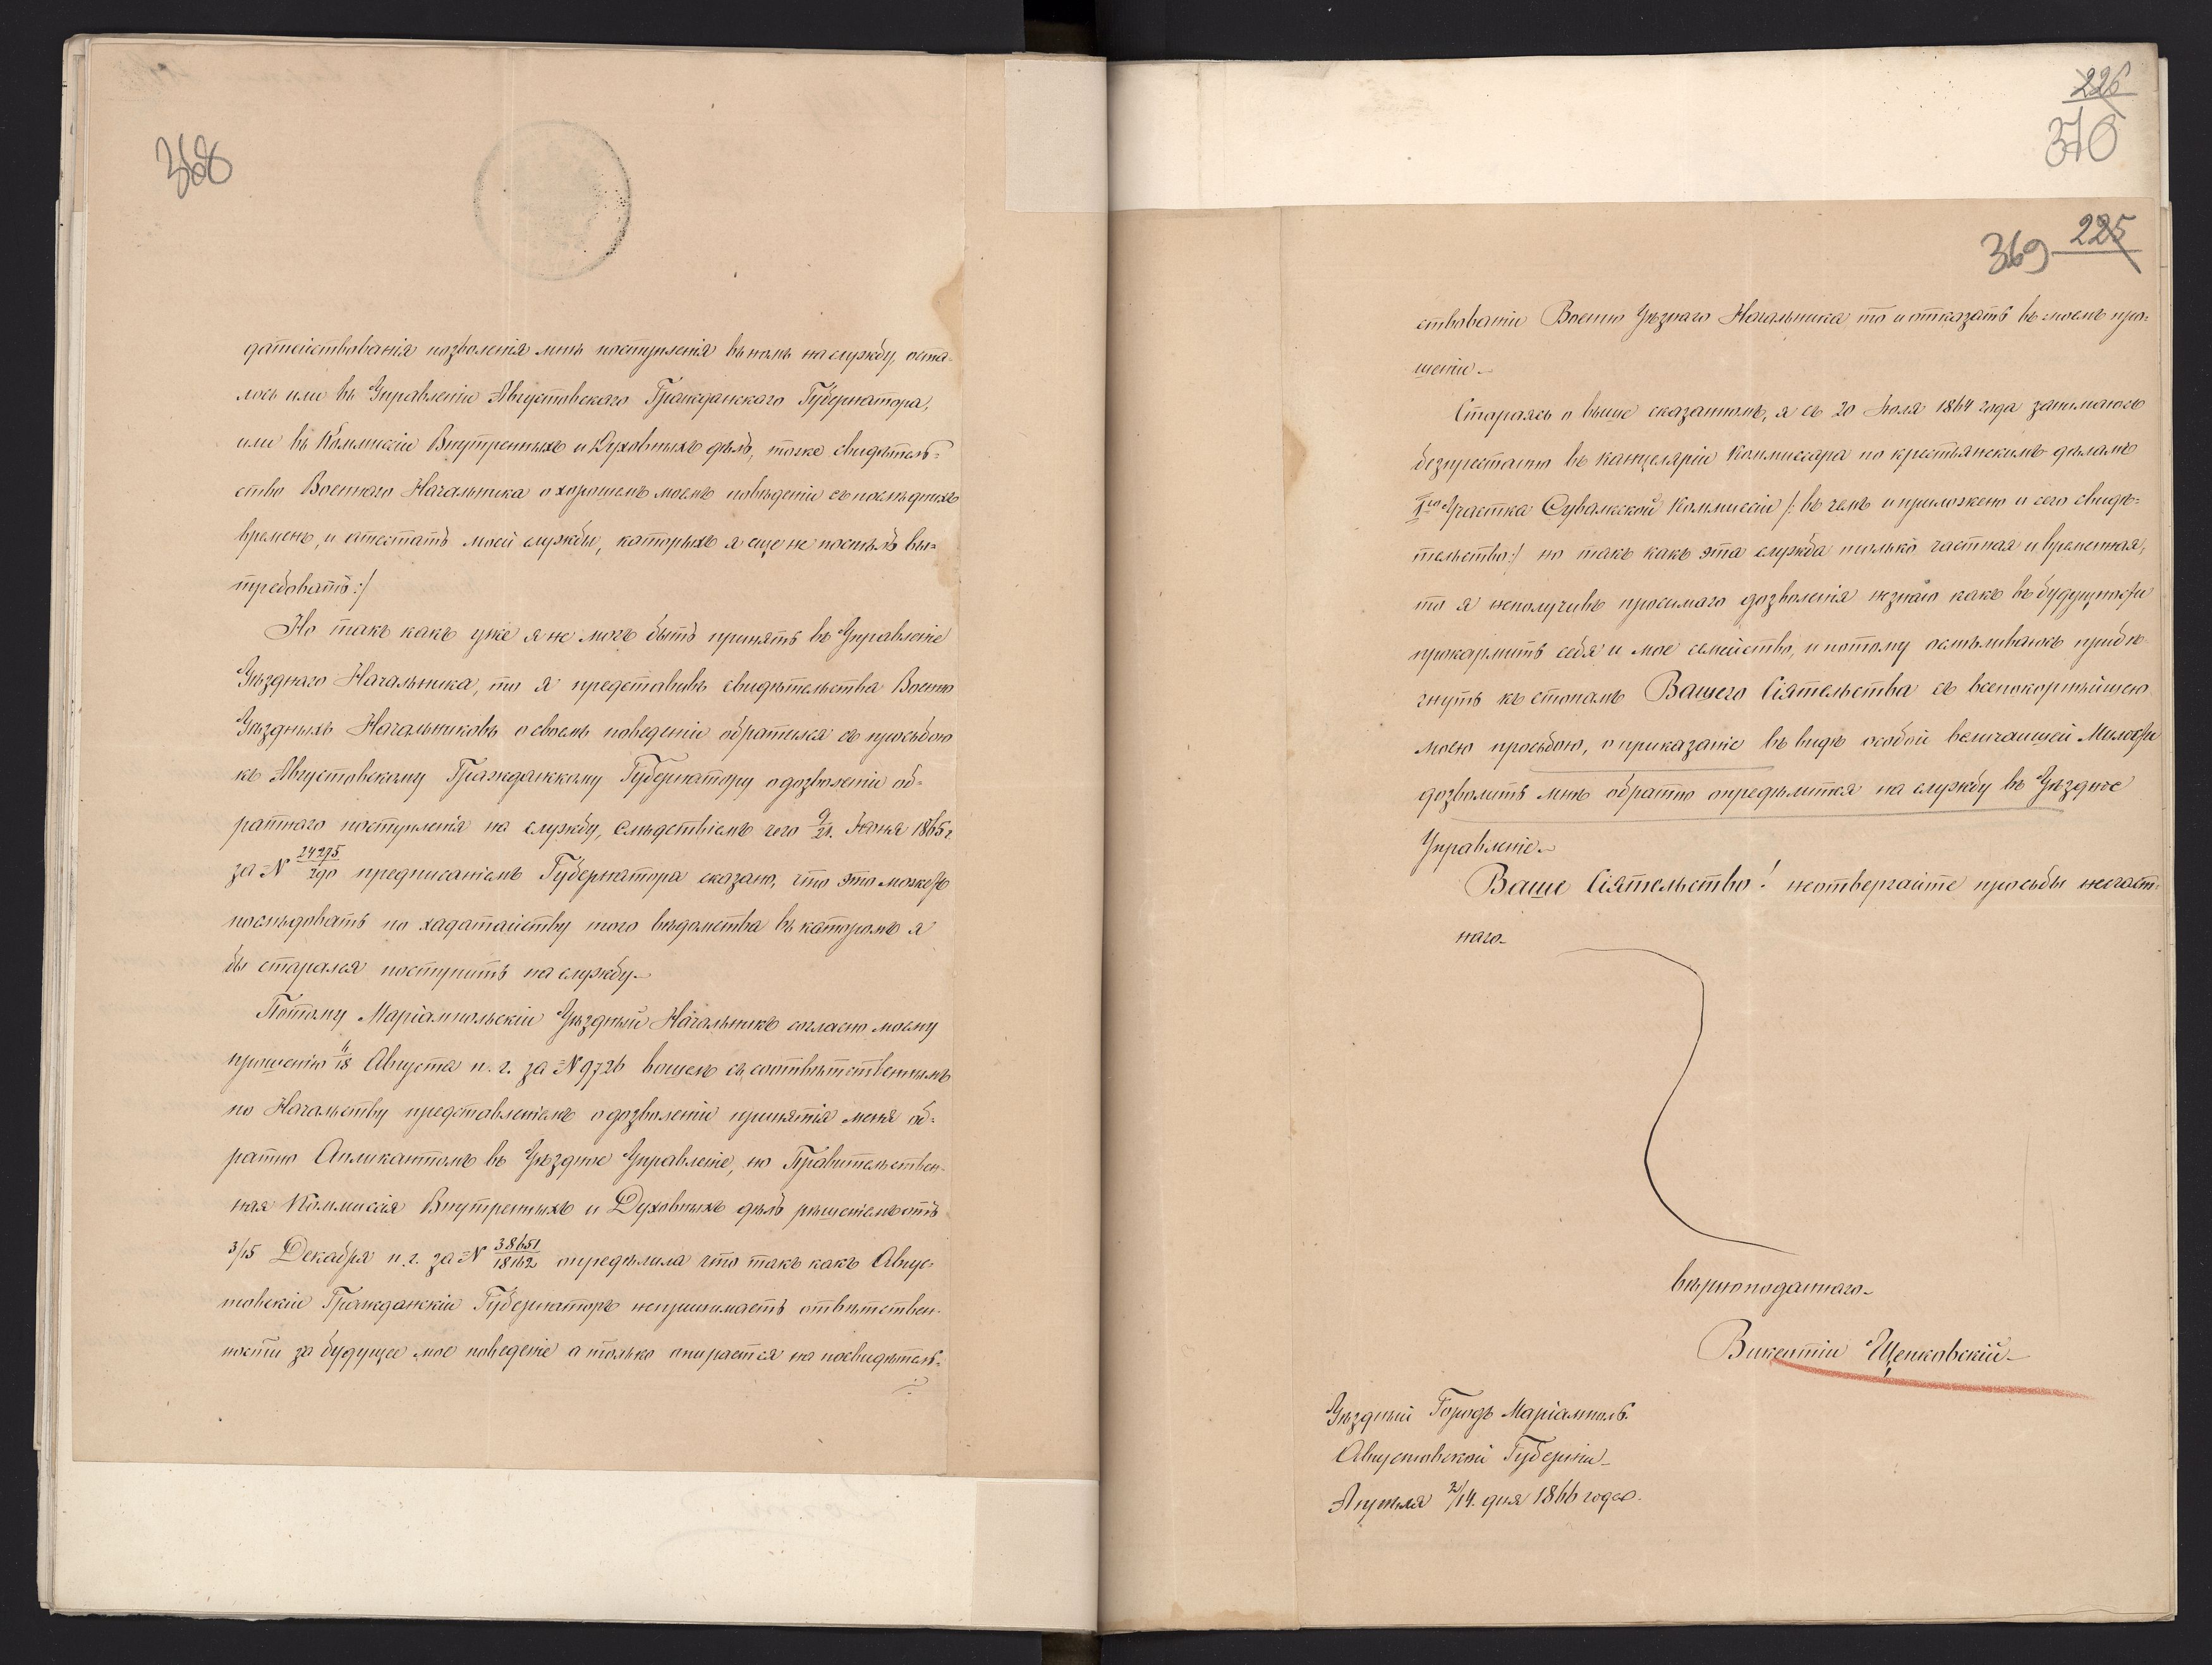 368
датействованія позволенія мнѣ поступленія вь номъ на службу, оста-
лось или въ Управленіи Августовскаго Гражданскаго Губернатора,
или въ Коммисіи Внутренныхъ и Духовныхъ дѣлъ, тоже свидѣтель=
ство Военнаго Начальника о хорошемъ моемъ повѣденіи съ послѣднихъ
временъ, и атестатъ моей службы, каторыхъ я еще не поспѣлъ вы=
требовать:/
Но такъ какъ уже я не могъ быть принятъ въ Управленіе
Уѣзднаго Начальника, то я представивъ свидѣтельства Военно
Уѣздныхъ Начальниковъ о своемъ поведеніи обратился съ просьбою
къ Августовскому Гражданскому Губернатору о дозволеніи об=
ратнаго поступленія на службу, Слѣдствіемъ чего 9/21. Июня 1865 г.
за N 24275/290 предписаніемъ Губернатора сказано, что это можетъ
послѣдовать по хадатайству того вѣдомства въ каторомъ я
бы старался поступить на службу.
Потому Маріампольскій Уѣздный Начальникъ согласно моему
прошенію 6/18 Августа п. г. за N 9726 вошелъ съ соотвѣтственнымъ
по Начальству представленіемъ о дозволеніи принятія меня об=
ратно Апликантомъ въ Уѣздное Управленіе, но Правительствен-
ная Коммисія Внутренныхъ и Духовныхъ дѣлъ рѣшеніемъ отъ
3/15 Декабря п. г. за N 38651/18162 опредѣлила что такъ какъ Авгус-
товскій Гражданскій Губернаторъ непринимаетъ отвѣтствен-
ности за будущее мое поведеніе а только опирается на посвидѣтель=
226
370
369 225
ствованіи Военно Уѣзнаго Начальника то и отказать въ моемъ про=
шеніи.
Стараясь о выше сказанномъ, я съ 20 Іюля 1864 года занимаюсь
безпрестанно въ канцеляріи Коммиссара по крестьянскимъ дѣламъ
I го Участка Сувалкской Коммиссіи /: въ чемъ и приложено и сего свидѣ=
тельство:/ но такъ какъ эта служба только частная и временная,
то я неполучивъ просимаго дозволенія незнаю какъ въ будущности
прокармить себя и мое семейство, и потому осмѣливаюсь прибѣ-
гнуть къ стопамъ Вашего Сіятельства съ всепокорнѣйшею
моею просьбою, о приказаніе въ видѣ особой величайшей Милости
дозволить мнѣ обратно опредѣлится на службу въ Уѣздное
Управленіе.
Ваше Сіятельство! неотвергайте просьбы несчаст-
наго
вѣрноподаннаго
Викентій Щепковскій
Уѣздный Городъ Маріамполь.
Августовской Губерніи
Апрѣля 2/14. дня 1866 года.